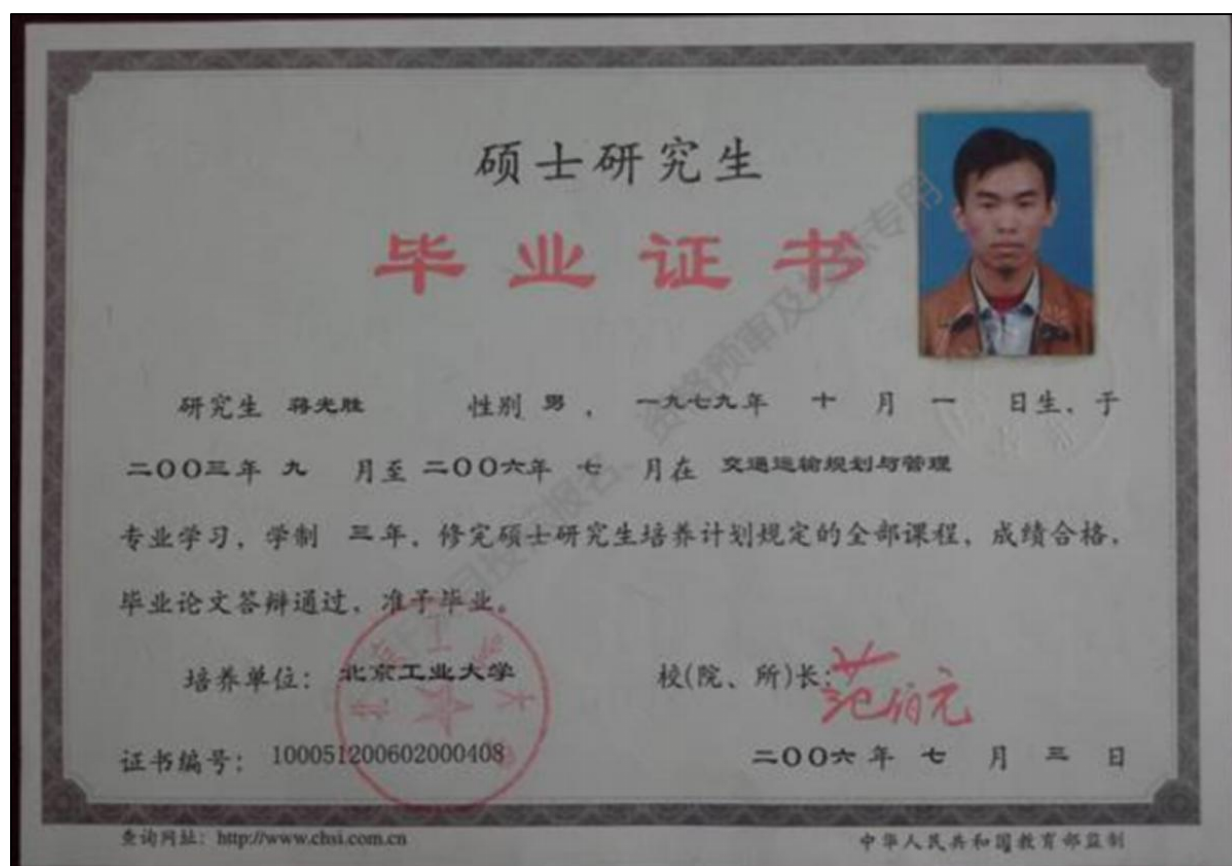 硕士研究生
毕业证书
研究生 蒋光胜 性别 男 , 一九七九年 十 月 一 日生、于
二〇〇三年 九 月至 二〇〇六年 七 月在 交通运输规划与管理
专业学习, 学制 三年, 修完硕士研究生培养计划规定的全部课程, 成绩合格,
毕业论文答辩通过, 准予毕业。
培养单位: 北京工业大学 校(院、所)长: 范伯元
证书编号: 100051200602000408 二〇〇六年 七 月 三 日
查询网址: http://www.chsi.com.cn 中华人民共和国教育部监制
资格预审及投标专用